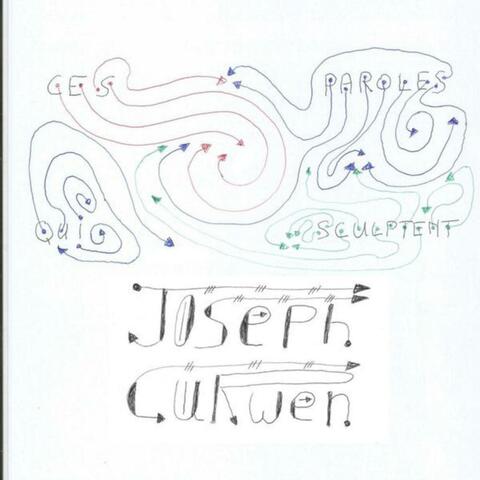 CES PAROLES
QUI SCULPTENT
Joseph
Curwen